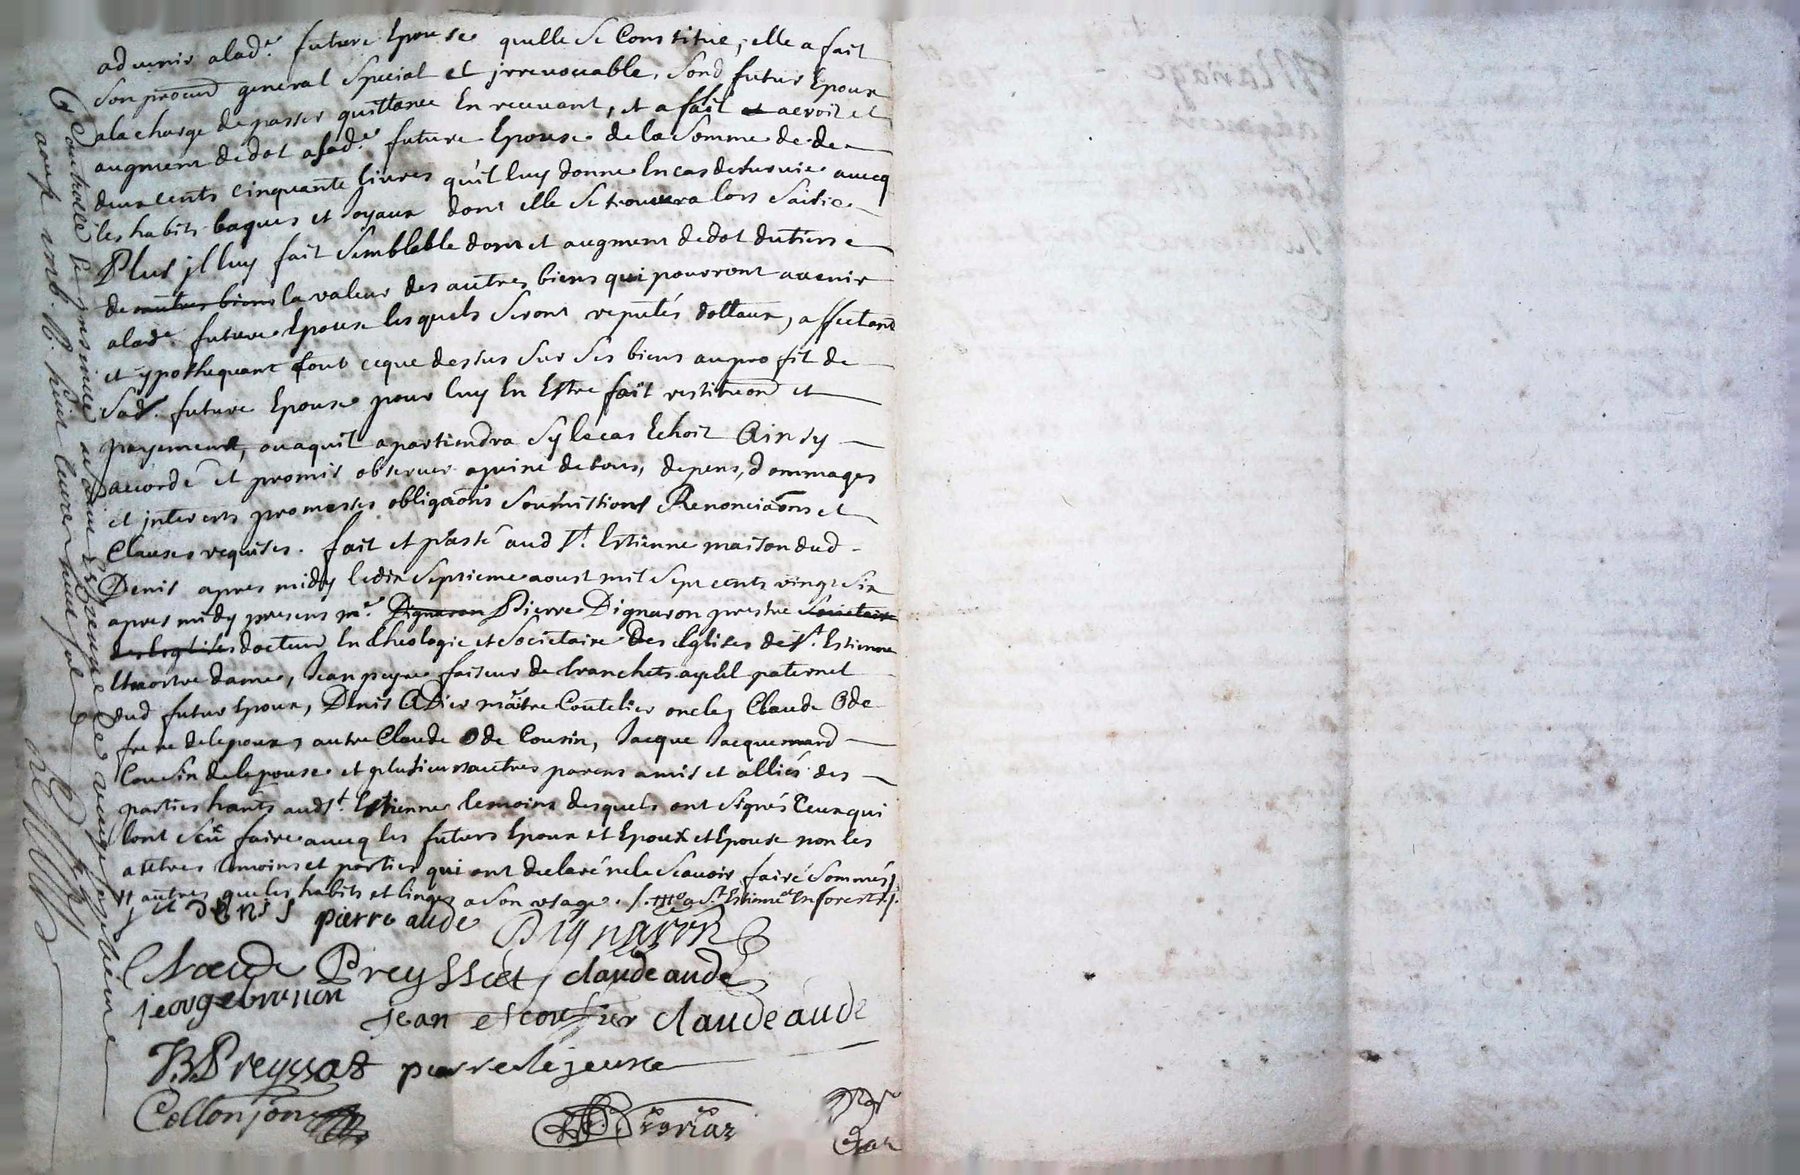 advenir a lad.e future Epouse quelle Se Constitue, elle a fait
Son procur general Special et jrrevocable, Sond futur Epoux
a la charge de passer quittance En recevant, et a fait acroit et
augment de dot a sad.e future Epouse de la Somme de de
deux cents cinquante livres qu'il luy donne En cas de survie avecq
les habits bagues et Joyaux dont elle Se trouvera lors Saisie
Plus jl luy fait Semblable don et augment de dot du tiers
de autres biens la valeur des autres biens qui pourront avenir
a lad.e future Epouse lesquels Seront reputés dottaux, affectant
et ypothequant tout ce que dessus Sur Ses biens au profit de
Sad. future Epouse pour luy En Estre fait restitu͠on et
payement, ou a qu'il apartiendra Sy le cas Echoit Ainsy
accordé et promis observer a peine de tous, depens, dommages
et jnterets promesses obliga͠ons Soumissions Renoncia͠ons et
Clauses requises. fait et passé aud S.t Estienne maison dud
Denis apres midy le dix Septieme aoust mil Sept cents vingt Six
apres midy presens m.e Dignaron Pierre Dignaron prestre Societaire
des Esglises docteur En theologie et Societaire Des Eglises de S.t Estienne
Et nostre dame, Jean peyre faiseur de tranchets ayeul paternel
dud futur Epoux, Denis Odier maitre Coutelier oncle, Claude Ode
frere de lepoux, autre Claude Ode Cousin, Jacque Jacquemard
Cousin de lepouse et plusieurs autres parens amis et alliés des
parties hants aud S.t Estienne temoins desquels ont Signés Ceux qui
lont Sçu faire avecq les futurs Epoux et Epoux et Epouse non les
autres temoins et parties qui ont declaré ne le Scavoir faire Sommés
et autres que les habits et linges a Son usage.
Denis pierre aude Dignaron
Claude Preyssat, claude aude
jeorge brunon
jean escoffier claude aude
B. Preyssat pierre le jeune
Collonjon
Controllé et jnsinué a Saint Estienne le vingt